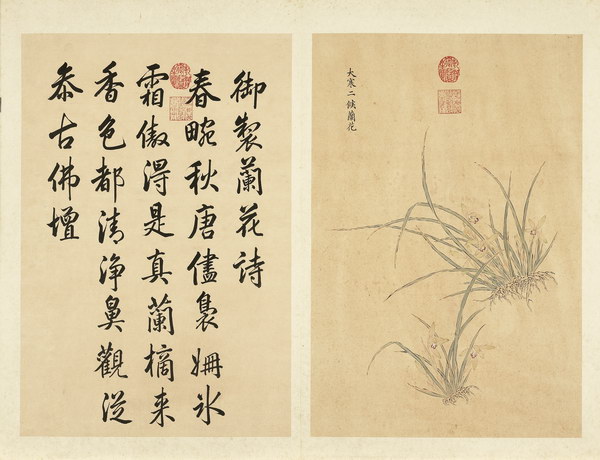 大寒二候蘭花
御製蘭花詩
春畹秋唐儘裊姍氷
霜傲淂是真蘭摘来
香色都清浄鼻觀從
叅古佛壇